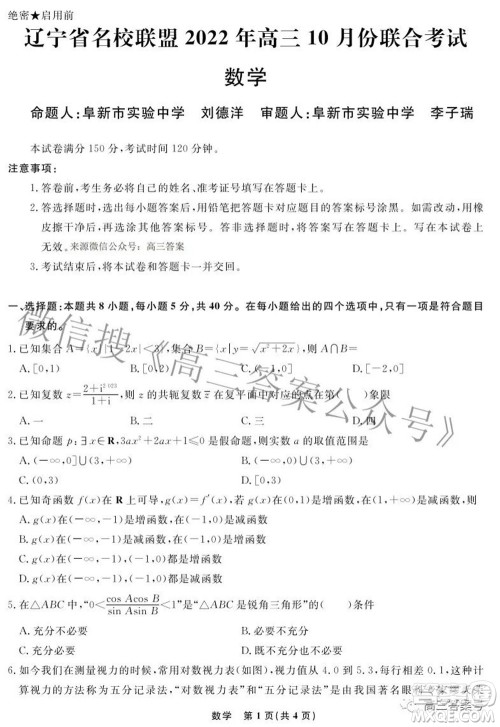 绝密★启用前
辽宁省名校联盟 2022 年高三 10 月份联合考试
数学
命题人:阜新市实验中学 刘德洋 审题人:阜新市实验中学 李子瑞
本试卷满分 150 分,考试时间 120 分钟。
注意事项:
1. 答卷前,考生务必将自己的姓名、准考证号填写在答题卡上。
2. 答选择题时,选出每小题答案后,用铅笔把答题卡对应题目的答案标号涂黑。如需改动,用橡
皮擦干净后,再选涂其他答案标号。答非选择题时,将答案写在答题卡上。写在本试卷上
无效。 来源微信公众号:高三答案
3. 考试结束后,将本试卷和答题卡一并交回。
一、选择题:本题共 8 小题,每小题 5 分,共 40 分。在每小题给出的四个选项中,只有一项是符合题目
要求的。
1. 已知集合 A={x||1-2x|<3},集合 B={x|y=√(x²+2x)},则 A∩B=
A. [0,1) B. [0,2) C. (-1,0] D. (0,2)
2. 已知复数 z=(2+i^2 023)/(1+i),则 z 的共轭复数 z̄ 在复平面中对应的点在第( )象限
A. 一 B. 二 C. 三 D. 四
3. 已知命题 p:∃x∈R,3ax²+2ax+1≤0 是假命题,则实数 a 的取值范围是
A. (-∞,0]∪(3,+∞) B. (-∞,0)∪(3,+∞)
C. (0,3) D. [0,3)
4. 已知奇函数 f(x) 在 R 上可导,g(x)=f′(x),若 g(x) 在(0,1)是增函数,在(1,+∞)是减函数,则
A. g(x)在(-∞,-1)是增函数,在(-1,0)是减函数
B. g(x)在(-∞,-1)是减函数,在(-1,0)是增函数
C. g(x)在(-∞,-1),(-1,0)都是增函数
D. g(x)在(-∞,-1),(-1,0)都是减函数
5. 在△ABC 中,“0<(cos Acos B)/(sin Asin B)<1”是“△ABC 是锐角三角形”的( )条件
A. 充分不必要 B. 必要不充分
C. 充要 D. 既不充分也不必要
6. 如今我们在测量视力的时候,常用对数视力表(如图),视力值从 4.0 到 5.3,各行相差 0.1,这种计
算视力的方法称为五分记录法,“对数视力表”和“五分记录法”
数学 第 1 页(共 4 页)
高三答案
微信搜《高三答案公众号》